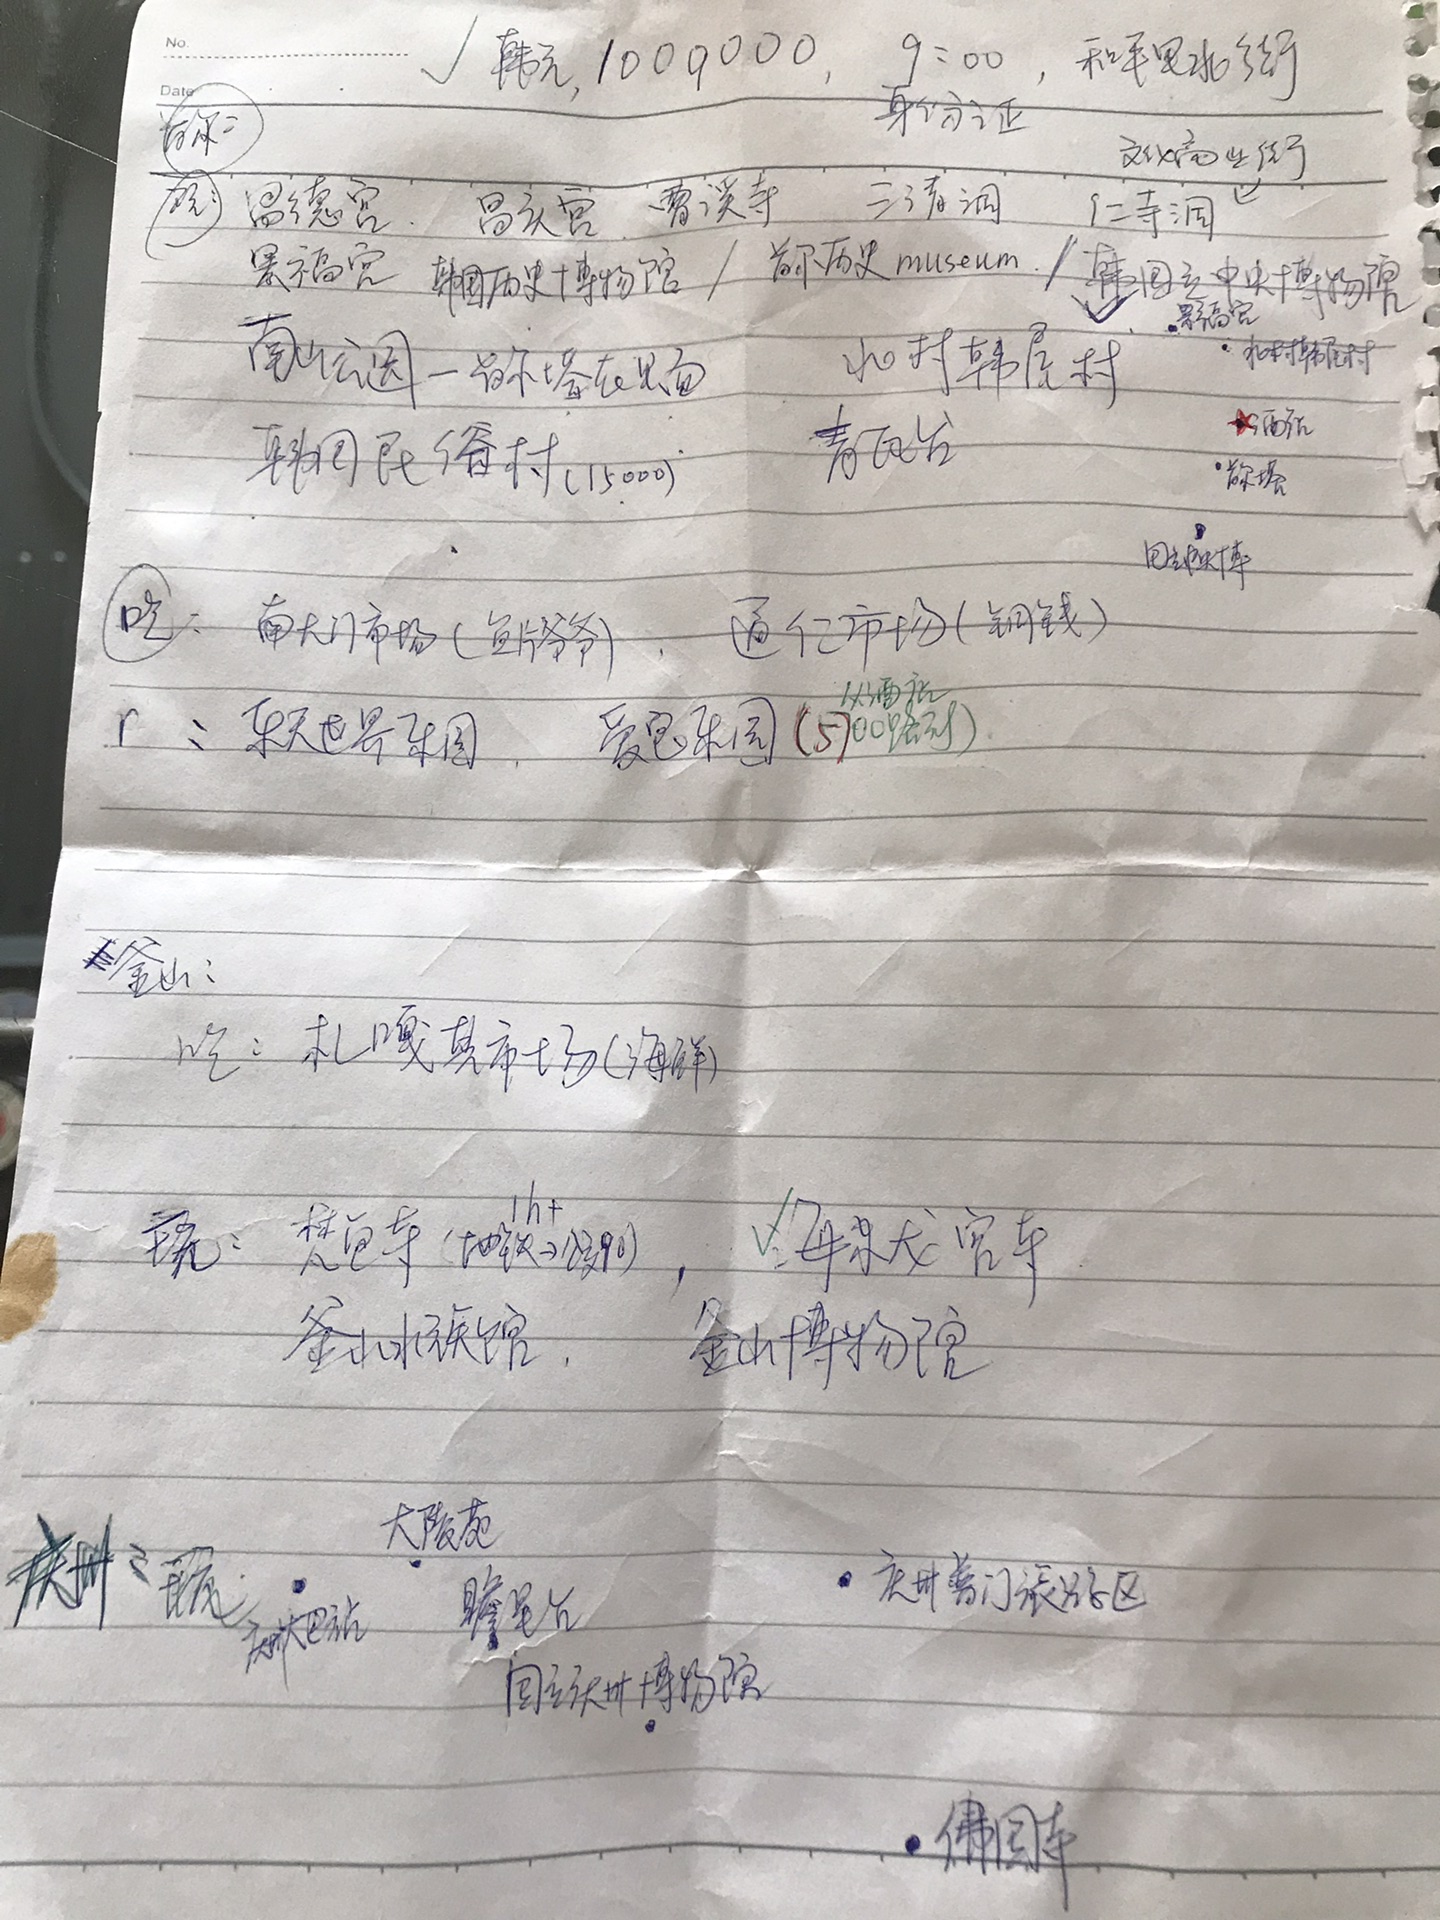 No.
Date
✓ 韩元, 1000000, 9:00, 和平里北街
身份证
首尔:
文化商业街
玩: 昌德宫. 昌庆宫. 曹溪寺 三清洞 仁寺洞
景福宫 韩国历史博物馆 / 首尔历史museum. / 韩国立中央博物馆
南山公园—首尔塔在里面 北村韩屋村
韩国民俗村(15000) 青瓦台
景福宫
北村韩屋村
酒店
首尔塔
吃: 南大门市场(鱼片爷爷), 通仁市场(铜钱)
从酒店
乐天世界乐园, 爱宝乐园(5)
釜山:
吃: 札嘎其市场(海鲜)
1h+
玩: 梵鱼寺(地铁→公交90), ✓海东龙宫寺
釜山水族馆, 釜山博物馆
大陵苑
庆州: 玩
庆州大巴站
瞻星台
庆州普门旅游区
国立庆州博物馆
佛国寺